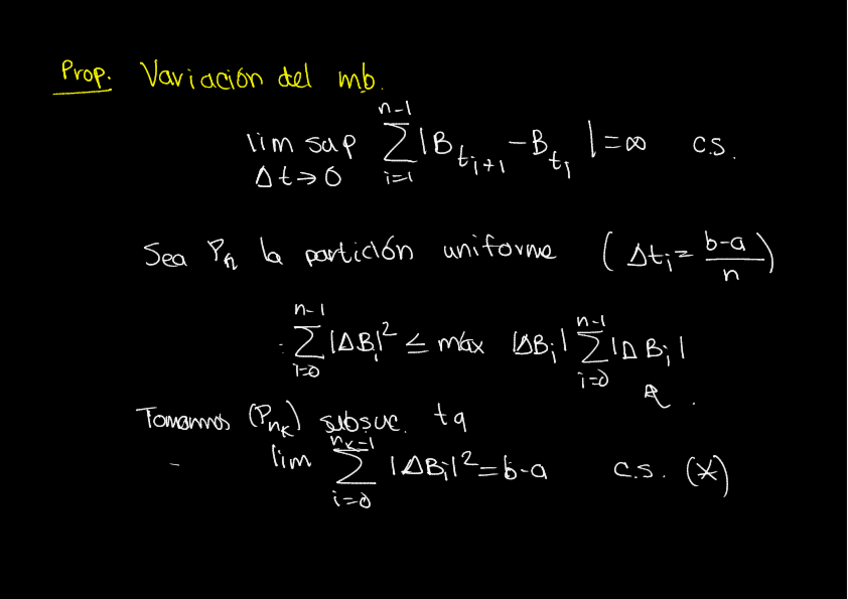 Prop. Variación del mb.
lim sup_{Δt→0} ∑_{i=1}^{n-1} |B_{t_{i+1}} - B_{t_i}| = ∞ c.s.
Sea P_n la partición uniforme (Δt_i = \frac{b-a}{n})
∑_{i=0}^{n-1} |ΔB_i|^2 ≤ máx |ΔB_i| ∑_{i=0}^{n-1} |ΔB_i|
Tomamos (P_{n_k}) subsuc. tq
lim ∑_{i=0}^{n_k-1} |ΔB_i|^2 = b-a c.s. (*)